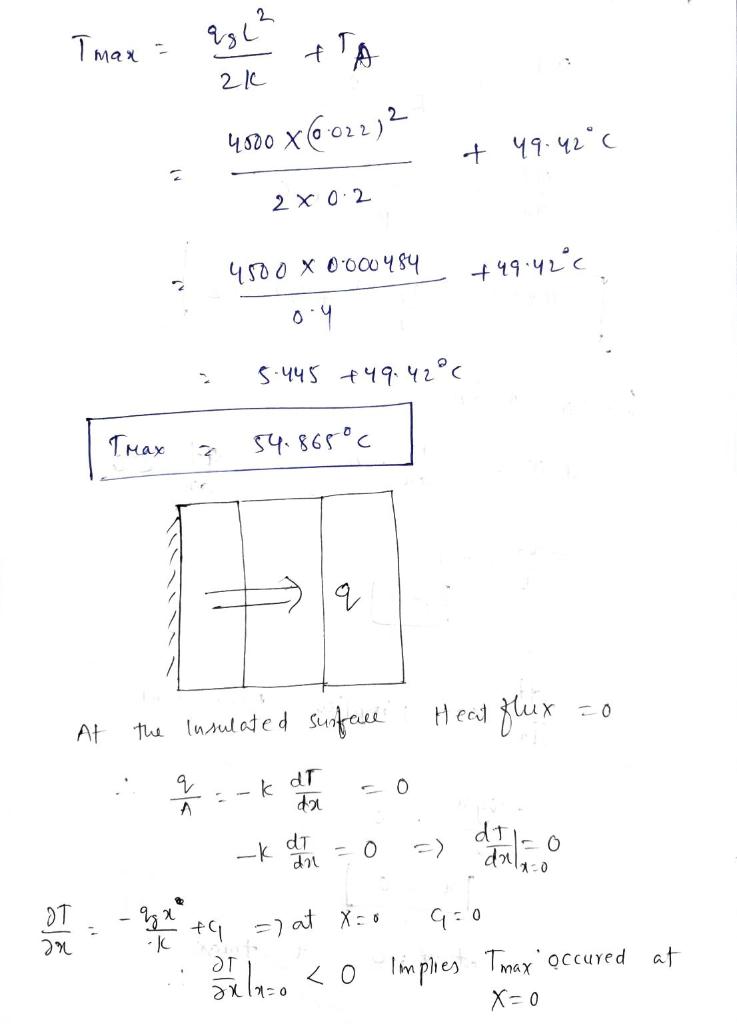 Tmax = q_g L² / 2K + T_A
= 4500 × (0.022)² / 2 × 0.2 + 49.42°C
= 4500 × 0.000484 / 0.4 + 49.42°C
= 5.445 + 49.42°C
TMax = 54.865°C
q
At the Insulated surface Heat flux = 0
∴ q/A = -k dT/dx = 0
-k dT/dx = 0 => dT/dx|x=0 = 0
∂T/∂x = -q_g x/K + C₁ => at X=0 C₁=0
∴ ∂T/∂x|x=0 < 0 Implies Tmax occured at
X=0